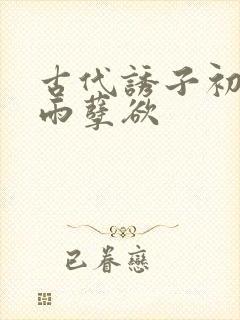 古代誘子初
雨孽欲
已眷戀